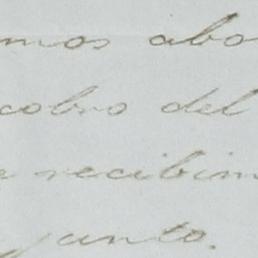 mos abo
cobro del
e recibim
y junto.